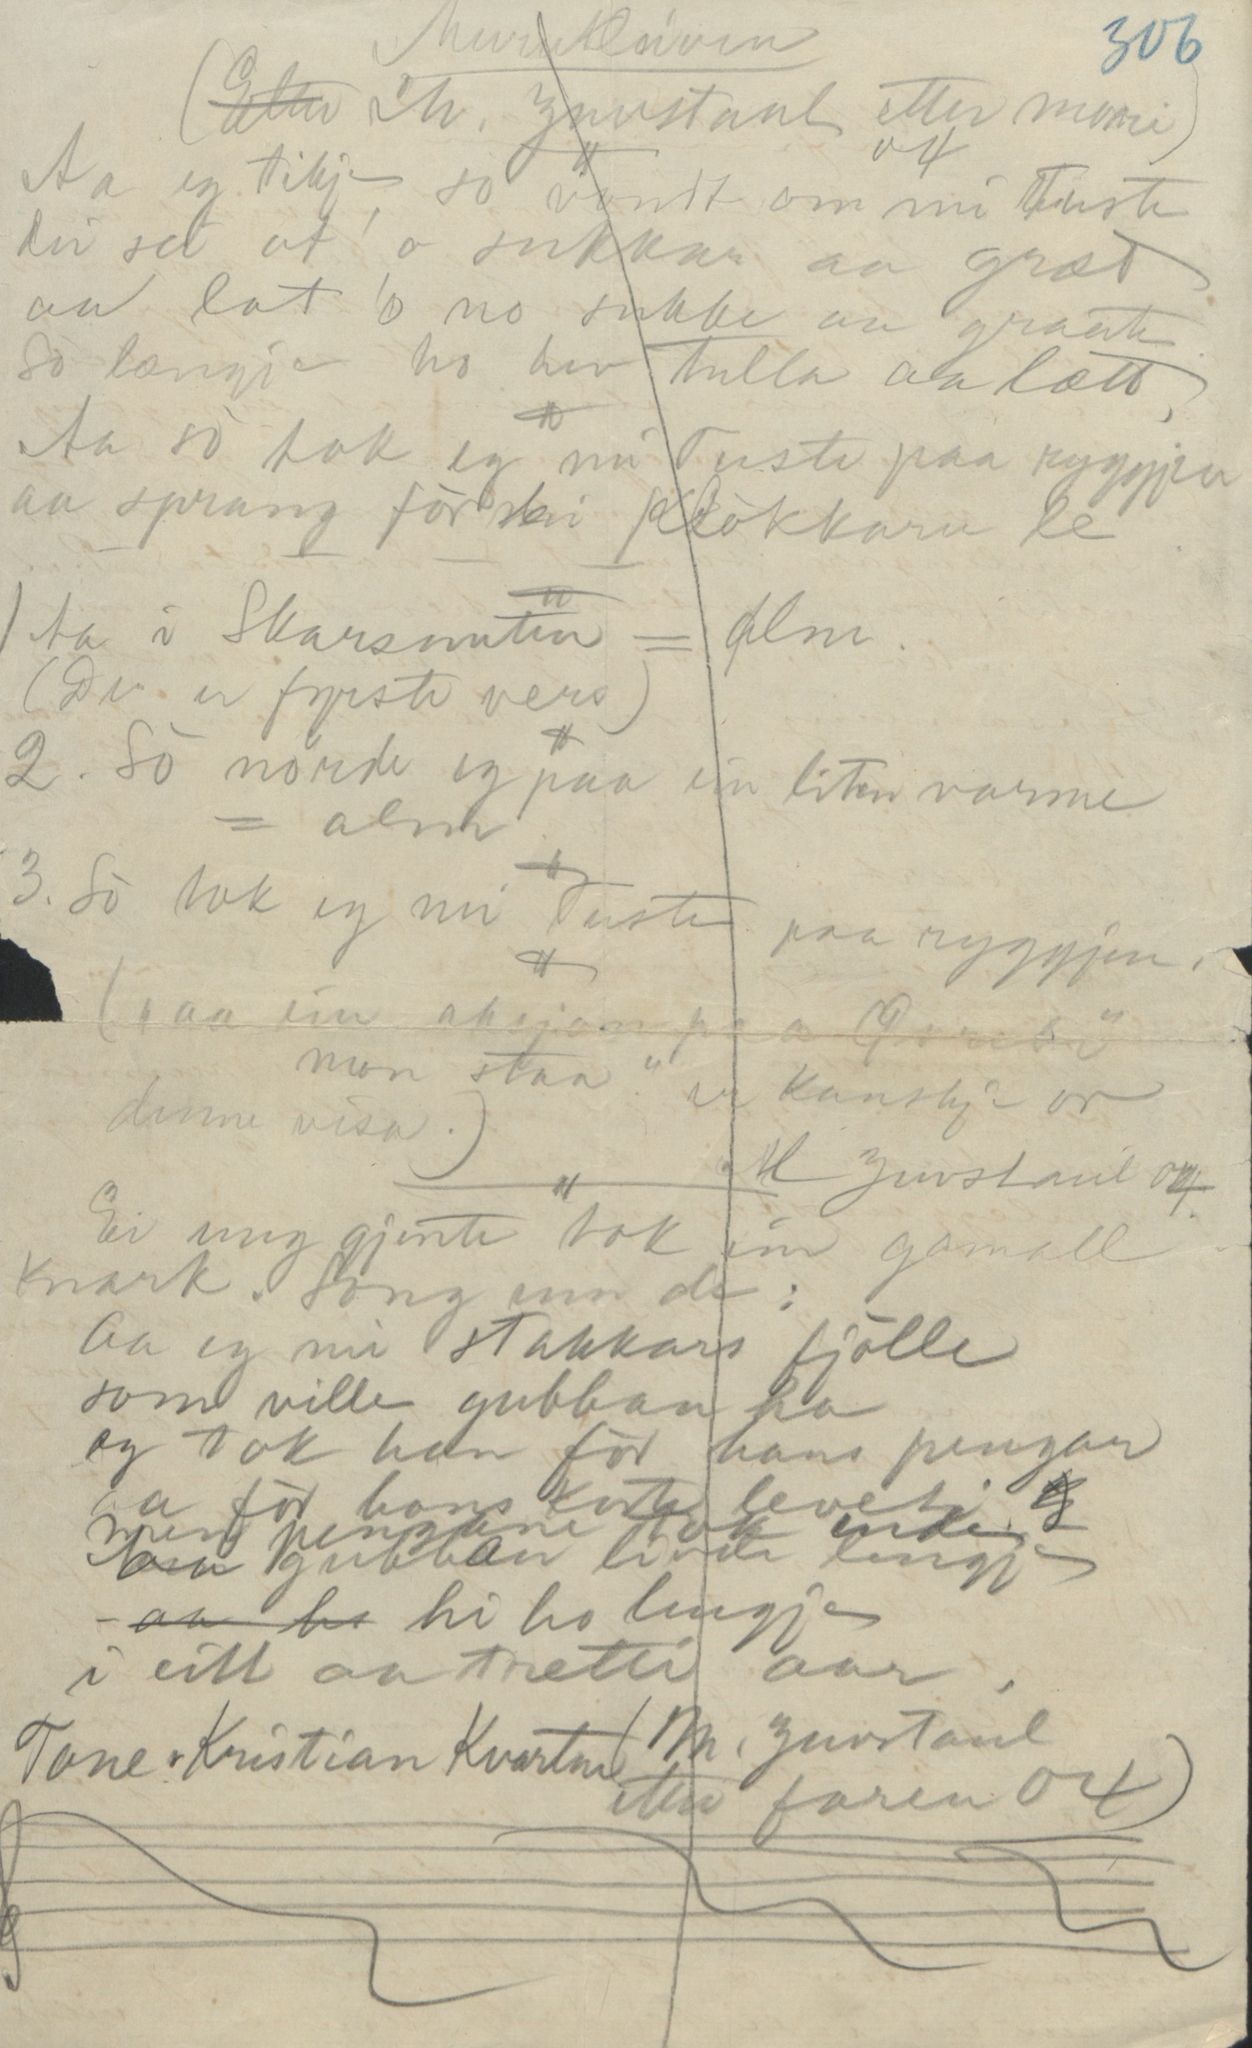 306
(Etter M. Juvstaul etter mori)
04
Aa eg tikje so vondt om mi Tuste
o sukkar aa græt
aa lat 'o no sukke aa graate
So længje ho hev tulla aa lætt,
Aa so tok eg mi Tuste paa ryggjen
aa sprang för
Aa i Skarsnuten = alm.
(De er fyrste vers)
2. So nörde eg paa ein liten varme
= alm
3. So tok eg mi Tuste paa ryggjen.
(paa ein
mon staa" er kanskje or
denne visa.)
M Juvstaul 04.
Ei ung gjente tok ein gamall
knark. Song um de:
Aa eg mi stakkars fjölle
som ville gubban ha
og tok han för hans pengar
aa för hans korte leveti
men pengane tok ende
gubban livde lengje
- aa ho hi ho lengje
i eitt aa tretti aar.
Tone. Kristian (M. Juvstaul
etter faren 04)